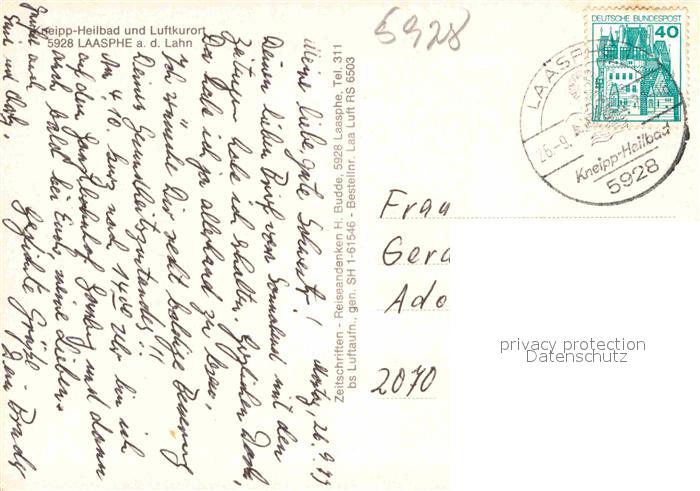 Kneipp-Heilbad und Luftkurort
5928 LAASPHE a. d. Lahn
5928
DEUTSCHE BUNDESPOST
40
LAASPHE
26.-9.
Kneipp-Heilbad
5928
Montag, 26.9.77
Meine liebe gute Schwester!
Deinen lieben Brief vom Sonnabend mit den
Zeitungen habe ich erhalten. Herzlichen Dank,
Da habe ich ja allerhand zu lesen,
Ich wünsche Dir recht baldige Besserung
Deines Gesundheitszustandes!!
Am 4.10. kurz nach 14 00 Uhr bin ich
auf dem Hamburg und dann
auch bald bei Euch, meine Lieben.
Herzliche Grüße
Dein
Zeitschriften - Reiseandenken H. Budde, 5928 Laasphe, Tel. 311
bs Luftaufn., gen. SH 1-61546 - Bestellnr. Laa Luft RS 6503
Frau
Gerd
Ado
2070
privacy protection
Datenschutz